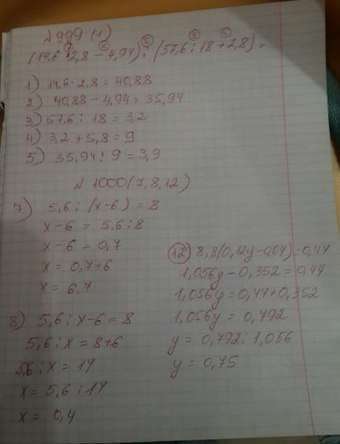 №999 (1)
(14,6 · 2,8 − 4,94) : (57,6 : 18 + 2,8) =
1) 14,6 · 2,8 = 40,88
2) 40,88 − 4,94 = 35,94
3) 57,6 : 18 = 3,2
4) 3,2 + 5,8 = 9
5) 35,94 : 9 = 3,9
№ 1000 (7, 8, 12)
7) 5,6 : (x − 6) = 8
x − 6 = 5,6 : 8
x − 6 = 0,7
x = 0,7 + 6
x = 6,7
8) 5,6 : x − 6 = 8
5,6 : x = 8 + 6
5,6 : x = 14
x = 5,6 : 14
x = 0,4
12) 8,8(0,12y − 0,04) = 0,44
1,056y − 0,352 = 0,44
1,056y = 0,44 + 0,352
1,056y = 0,792
y = 0,792 : 1,056
y = 0,75